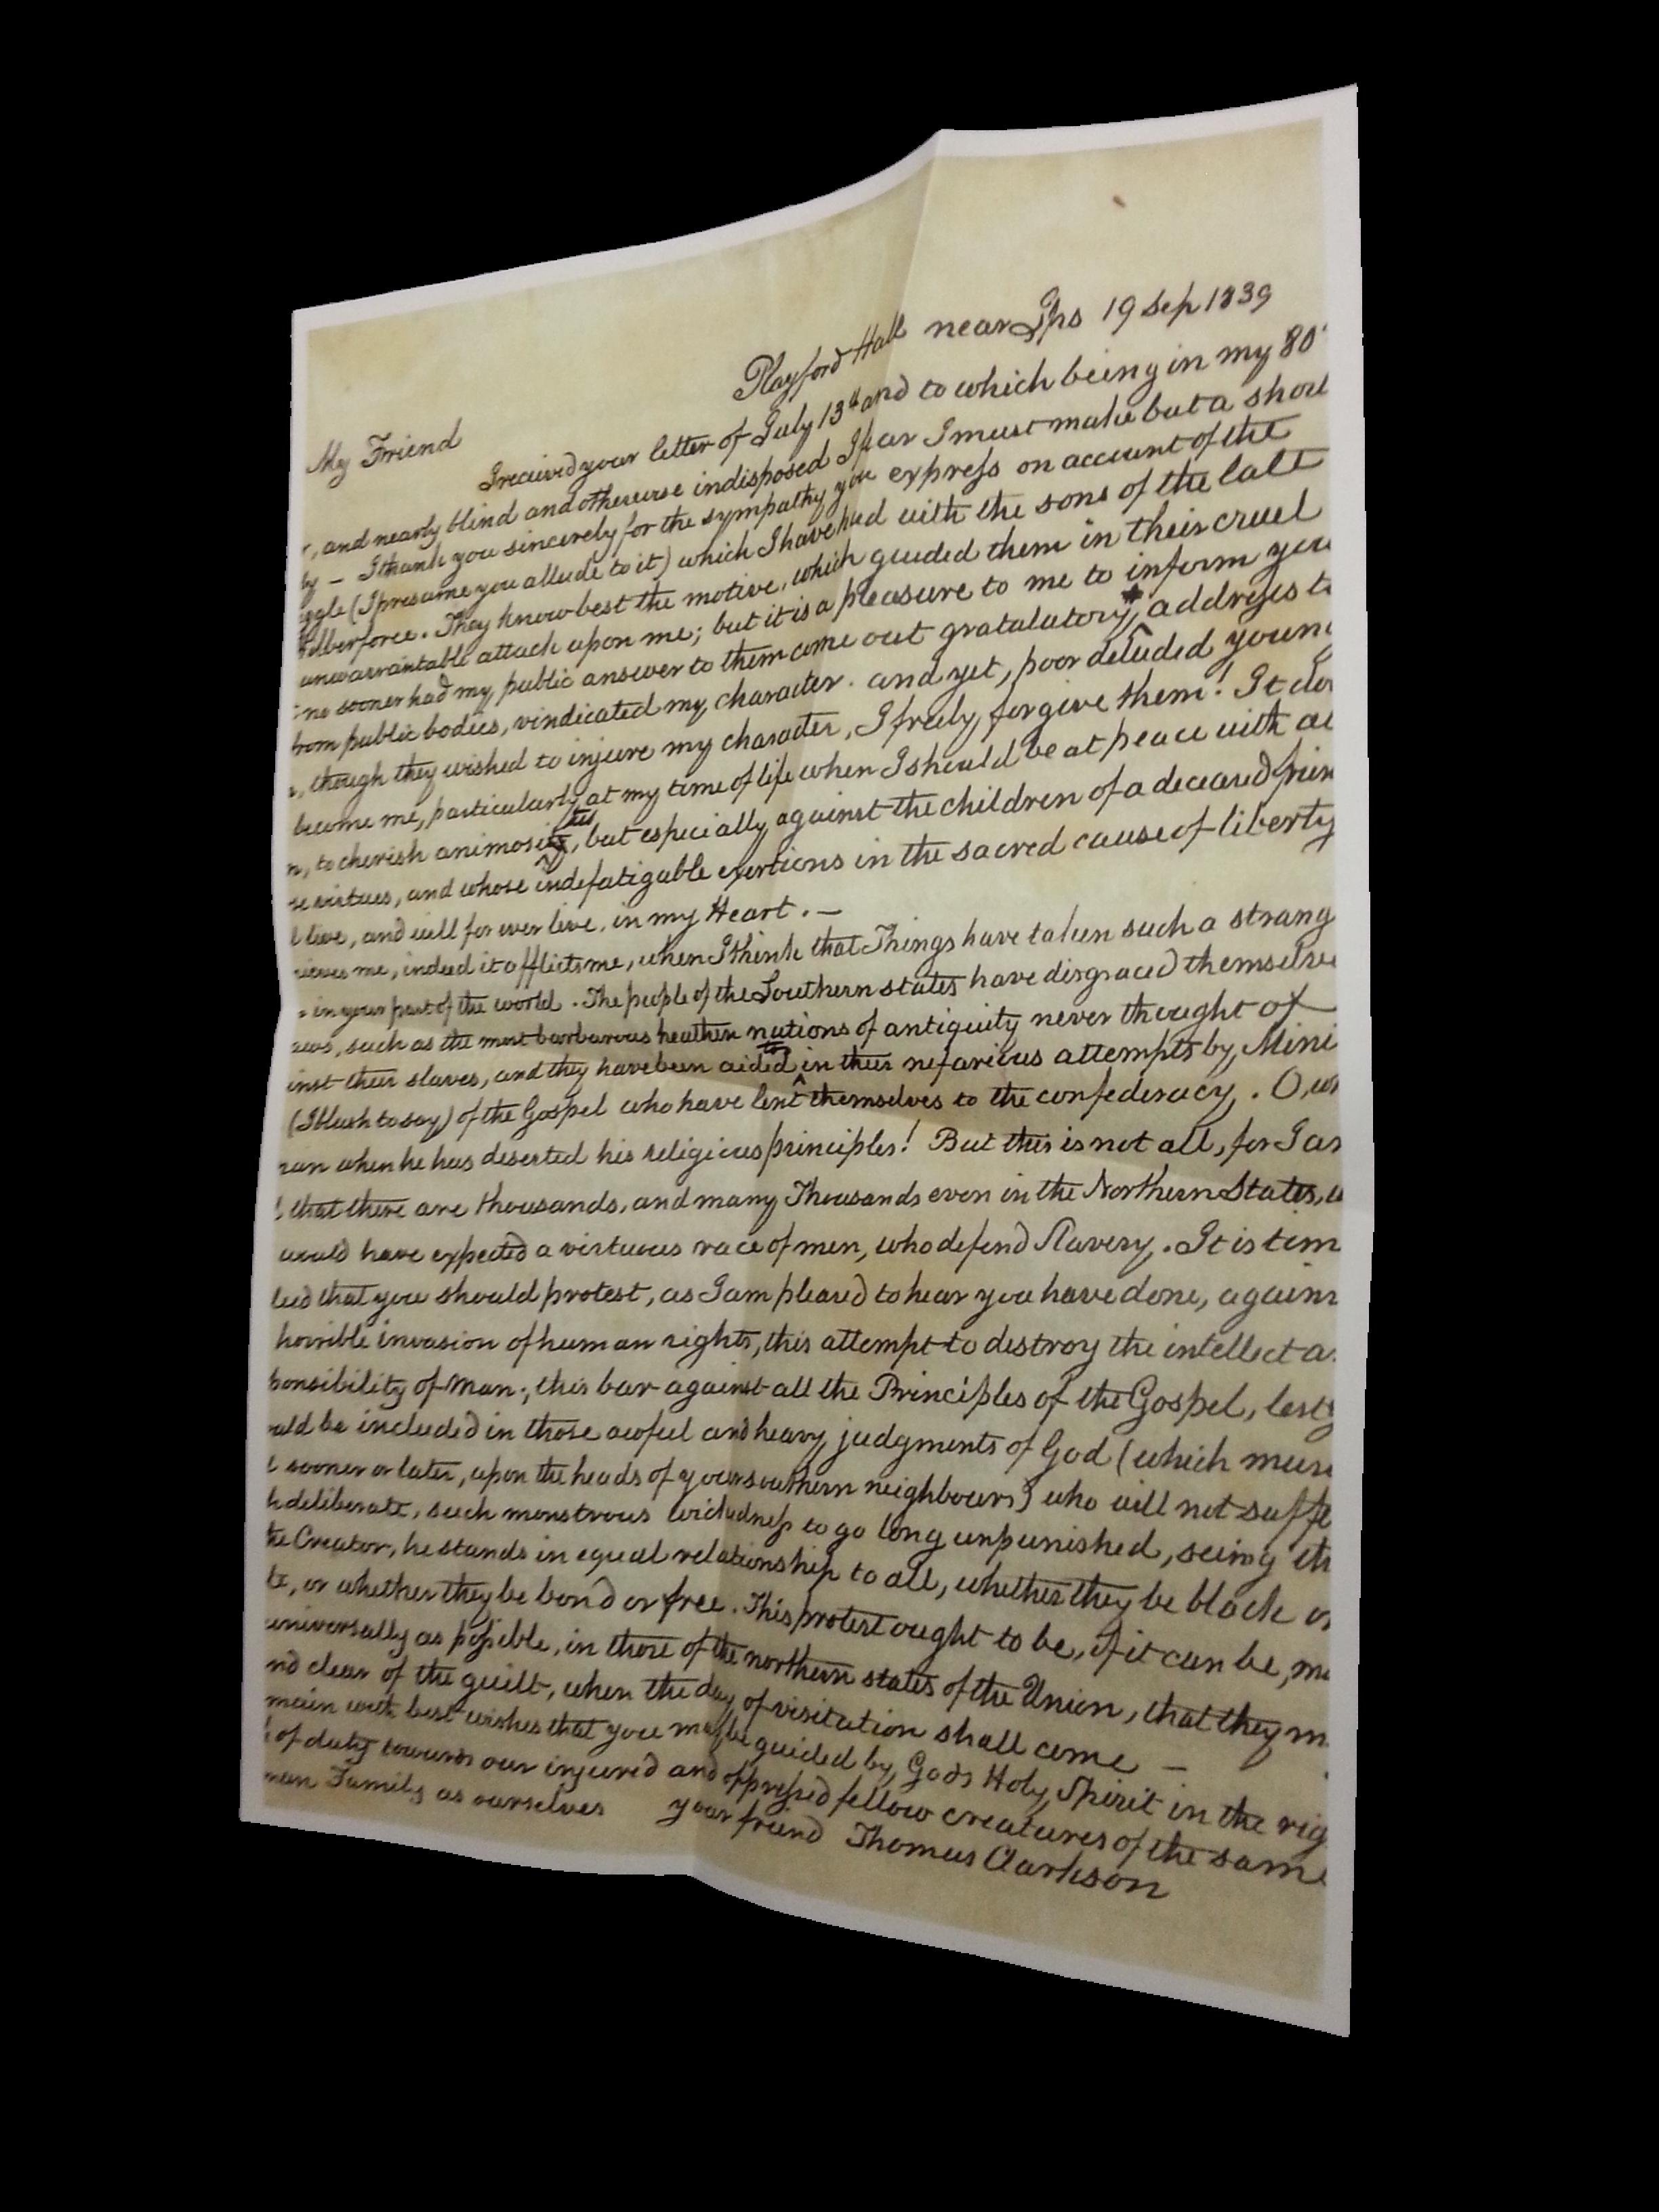 Playford Hall near Ips 19 Sep 1839
My Friend
I received your letter of July 13th and to which being in my 80
, and nearly blind and otherwise indisposed I fear I must make but a short
ly – I thank you sincerely for the sympathy you express on account of the
ggle (I presume you allude to it) which I have had with the sons of the late
Wilberforce. They know best the motive, which guided them in their cruel
unwarrantable attack upon me; but it is a pleasure to me to inform you
no sooner had my public answer to them come out gratulatory addresses to
from public bodies, vindicated my character. and yet, poor deluded young
, though they wished to injure my character, I freely forgive them! It do
become me, particularly at my time of life when I should be at peace with al
n, to cherish animosities, but especially against the children of a deceased frien
se virtues, and whose indefatigable exertions in the sacred cause of liberty
l live, and will for ever live, in my Heart. –
rieves me, indeed it afflicts me, when I think that Things have taken such a strang
in your part of the world. The people of the Southern states have disgraced themselve
aws, such as the most barbarous heathen nations of antiquity never thought of
inst their slaves, and they have been aided in their nefarious attempts by Mini
(I blush to say) of the Gospel who have lent themselves to the confederacy. O, wh
man when he has deserted his religious principles! But this is not all, for I am
that there are thousands, and many Thousands even in the Northern States, w
would have expected a virtuous race of men, who defend Slavery. It is tim
eed that you should protest, as I am pleased to hear you have done, agains
horrible invasion of human rights, this attempt to destroy the intellect a
ponsibility of Man; this bar against all the Principles of the Gospel, lest y
ould be included in those awful and heavy judgments of God (which must
l sooner or later, upon the heads of your southern neighbours) who will not suffe
h deliberate, such monstrous wickedness to go long unpunished, seeing th
the Creator, he stands in equal relationship to all, whether they be black or
te, or whether they be bond or free. This protest ought to be, if it can be, ma
universally as possible, in those of the northern states of the Union, that they m
nd clear of the guilt, when the day of visitation shall come –
main with best wishes that you may be guided by Gods Holy Spirit in the rig
of duty towards our injured and oppressed fellow creatures of the same
man Family as ourselves your friend Thomas Clarkson